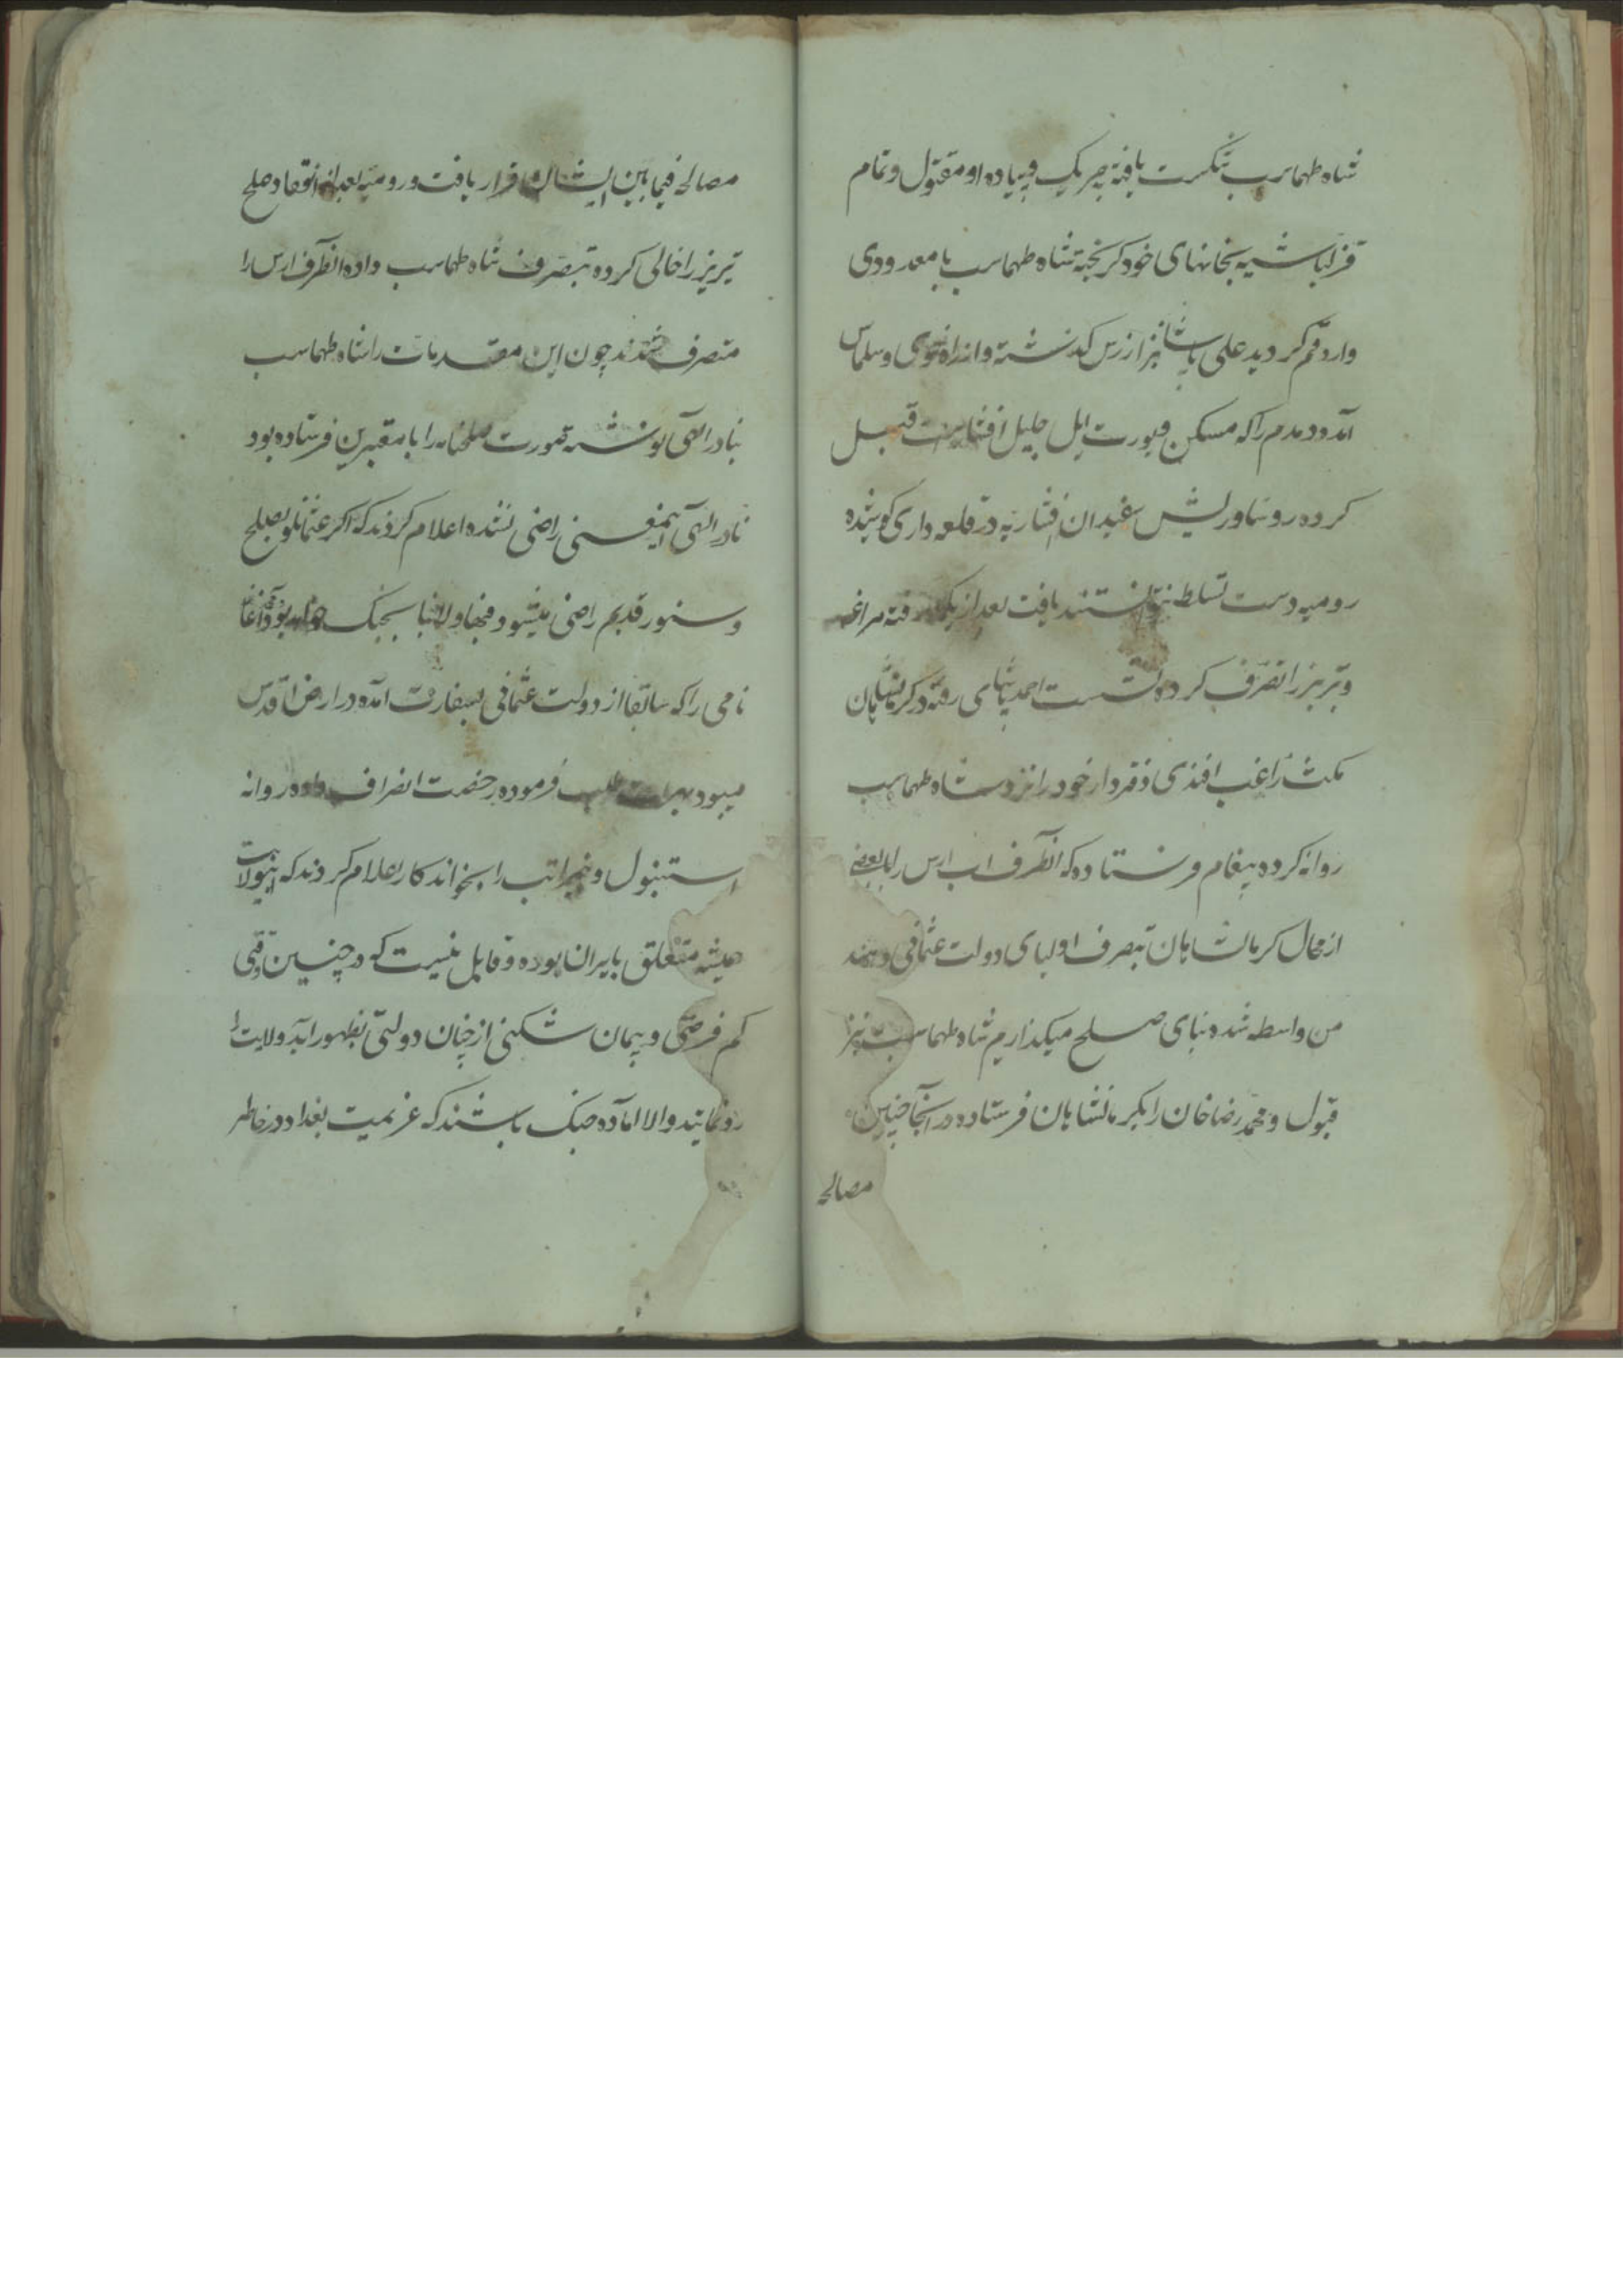 شاه طهماسب شکست یافته چریک و پیاده او مقتول و تمام
قزلباشیه بخانهای خود کریخته شاه طهماسب با معدودی
وارد قم کردید علی پاشا نیز از ارس کذشته و از راه خوی و سلماس
آمده و دمدم را که مسکن و یورت ایل جلیل افشار است قبل
کرده روسا و ریش سفیدان افشاریه در قلعه داری کوشیده
رومیه دست تسلط نتوانستند یافت بعد از یکماه رفته مراغه
و تبریز را تصرف کرده نشست احمد پاشای رفته در کرمانشاهان
مکث راغب افندی دفتردار خود را نزد شاه طهماسب
روانه کرده پیغام فرستاده که آنطرف اب ارس را با بعضی
از محال کرمانشاهان بتصرف اولیای دولت عثمانی دهند
من واسطه شده بنای صلح میکذاریم شاه طهماسب نیز
قبول و محمد رضا خان را بکرمانشاهان فرستاده در آنجا چنین
مصالحه
مصالحه فیمابین ایشان قرار یافت و رومیه بعد از انعقاد صلح
تبریز را خالی کرده بتصرف شاه طهماسب داده آنطرف ارس را
متصرف شدند چون این مقدمات را شاه طهماسب
بنادر الهی نوشته صورت صلحنامه را با معتبرین فرستاده بود
نادر الهی باینمعنی راضی نشده اعلام کردند که اکر عثمانلو بصلح
و سنور قدیم راضی میشود فبها و الا بنا بجنک خواهد بود
نامی را که سابقا از دولت عثمانی بسفارت آمده در ارض اقدس
میبود بهرات طلب فرموده رخصت انصراف داده روانه
استنبول و مراتب را بخواندکار اعلام کردند که اینولایت
همیشه متعلق بایران بوده و قابل نیست که در چنین وقتی
کم فرصتی و پیمان شکنی از چنان دولتی بظهور آید ولایت را
رد نمایند و الا آماده جنک باشند که عزیمت بغداد در خاطر